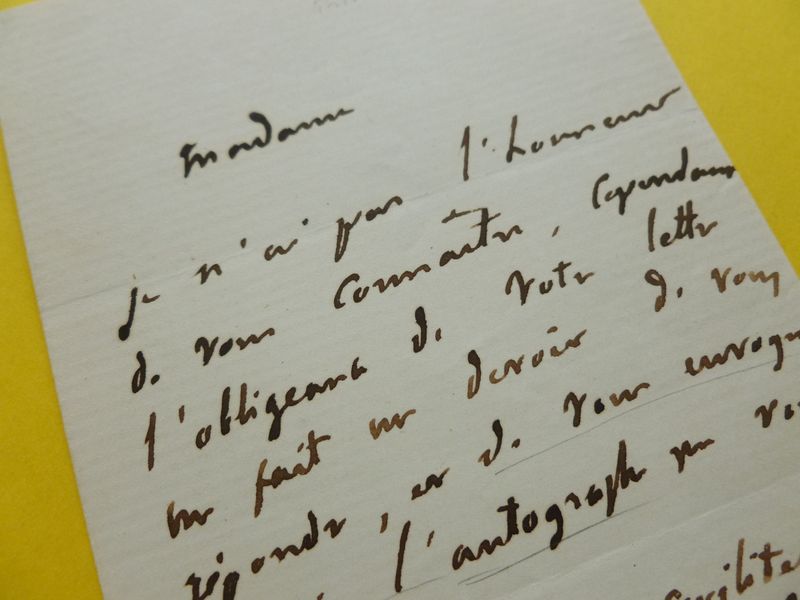 Madame
je n'ai pas l'honneur
de vous connaître, cependant
l'obligeance de votre lettre
me fait un devoir de vous
répondre, et de vous envoyer
l'autographe que vous